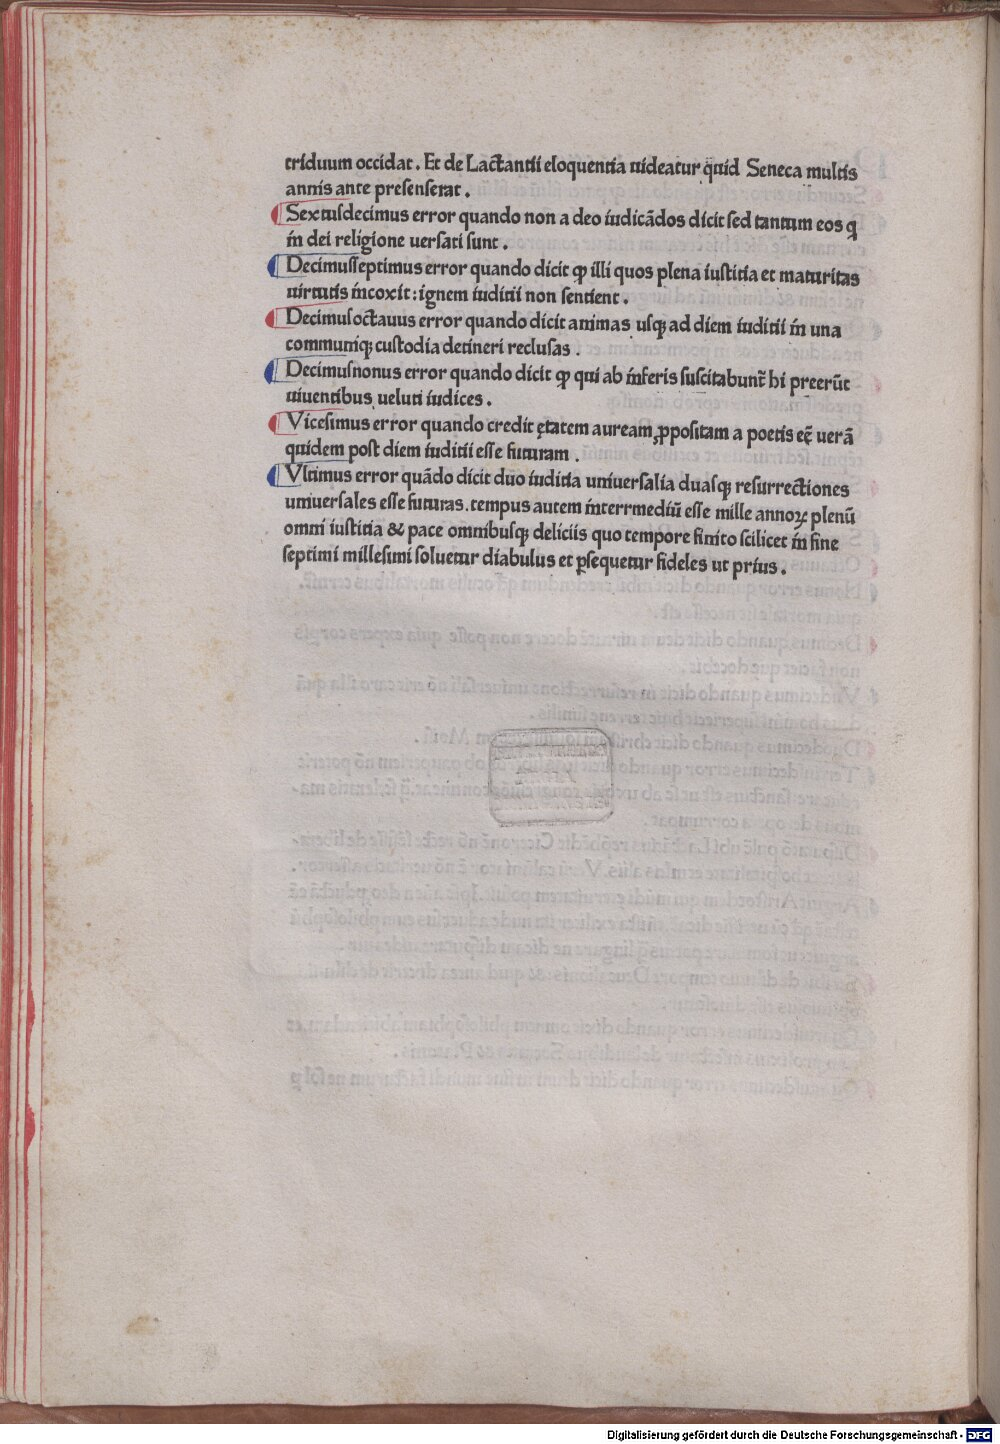 triduum occidat. Et de Lactantii eloquentia uideatur q̃uid Seneca multis
annis ante presenserat.
Sextusdecimus error quando non a deo iudicãdos dicit sed tantum eos q
in dei religione uersati sunt.
Decimusseptimus error quando dicit ꝙ illi quos plena iustitia et maturitas
uirtutis incoxit: ignem iuditii non sentient.
Decimusoctauus error quando dicit animas usqꝫ ad diem iuditii in una
communiqꝫ custodia detineri reclusas.
Decimusnonus error quando dicit ꝙ qui ab inferis suscitabunt̃ hi preerũt
uiuentibus ueluti iudices.
Vicesimus error quando credit ętatem auream ꝓpositam a poetis eẽ uerã
quidem post diem iuditii esse futuram.
Vltimus error quãdo dicit duo iuditia uniuersalia duasqꝫ resurrectiones
uniuersales esse futuras. tempus autem interrmediũ esse mille annoꝝ plenũ
omni iustitia & pace omnibusqꝫ deliciis quo tempore finito scilicet in fine
septimi millesimi soluetur diabulus et ꝑsequetur fideles ut prius.
Digitalisierung gefördert durch die Deutsche Forschungsgemeinschaft - DFG